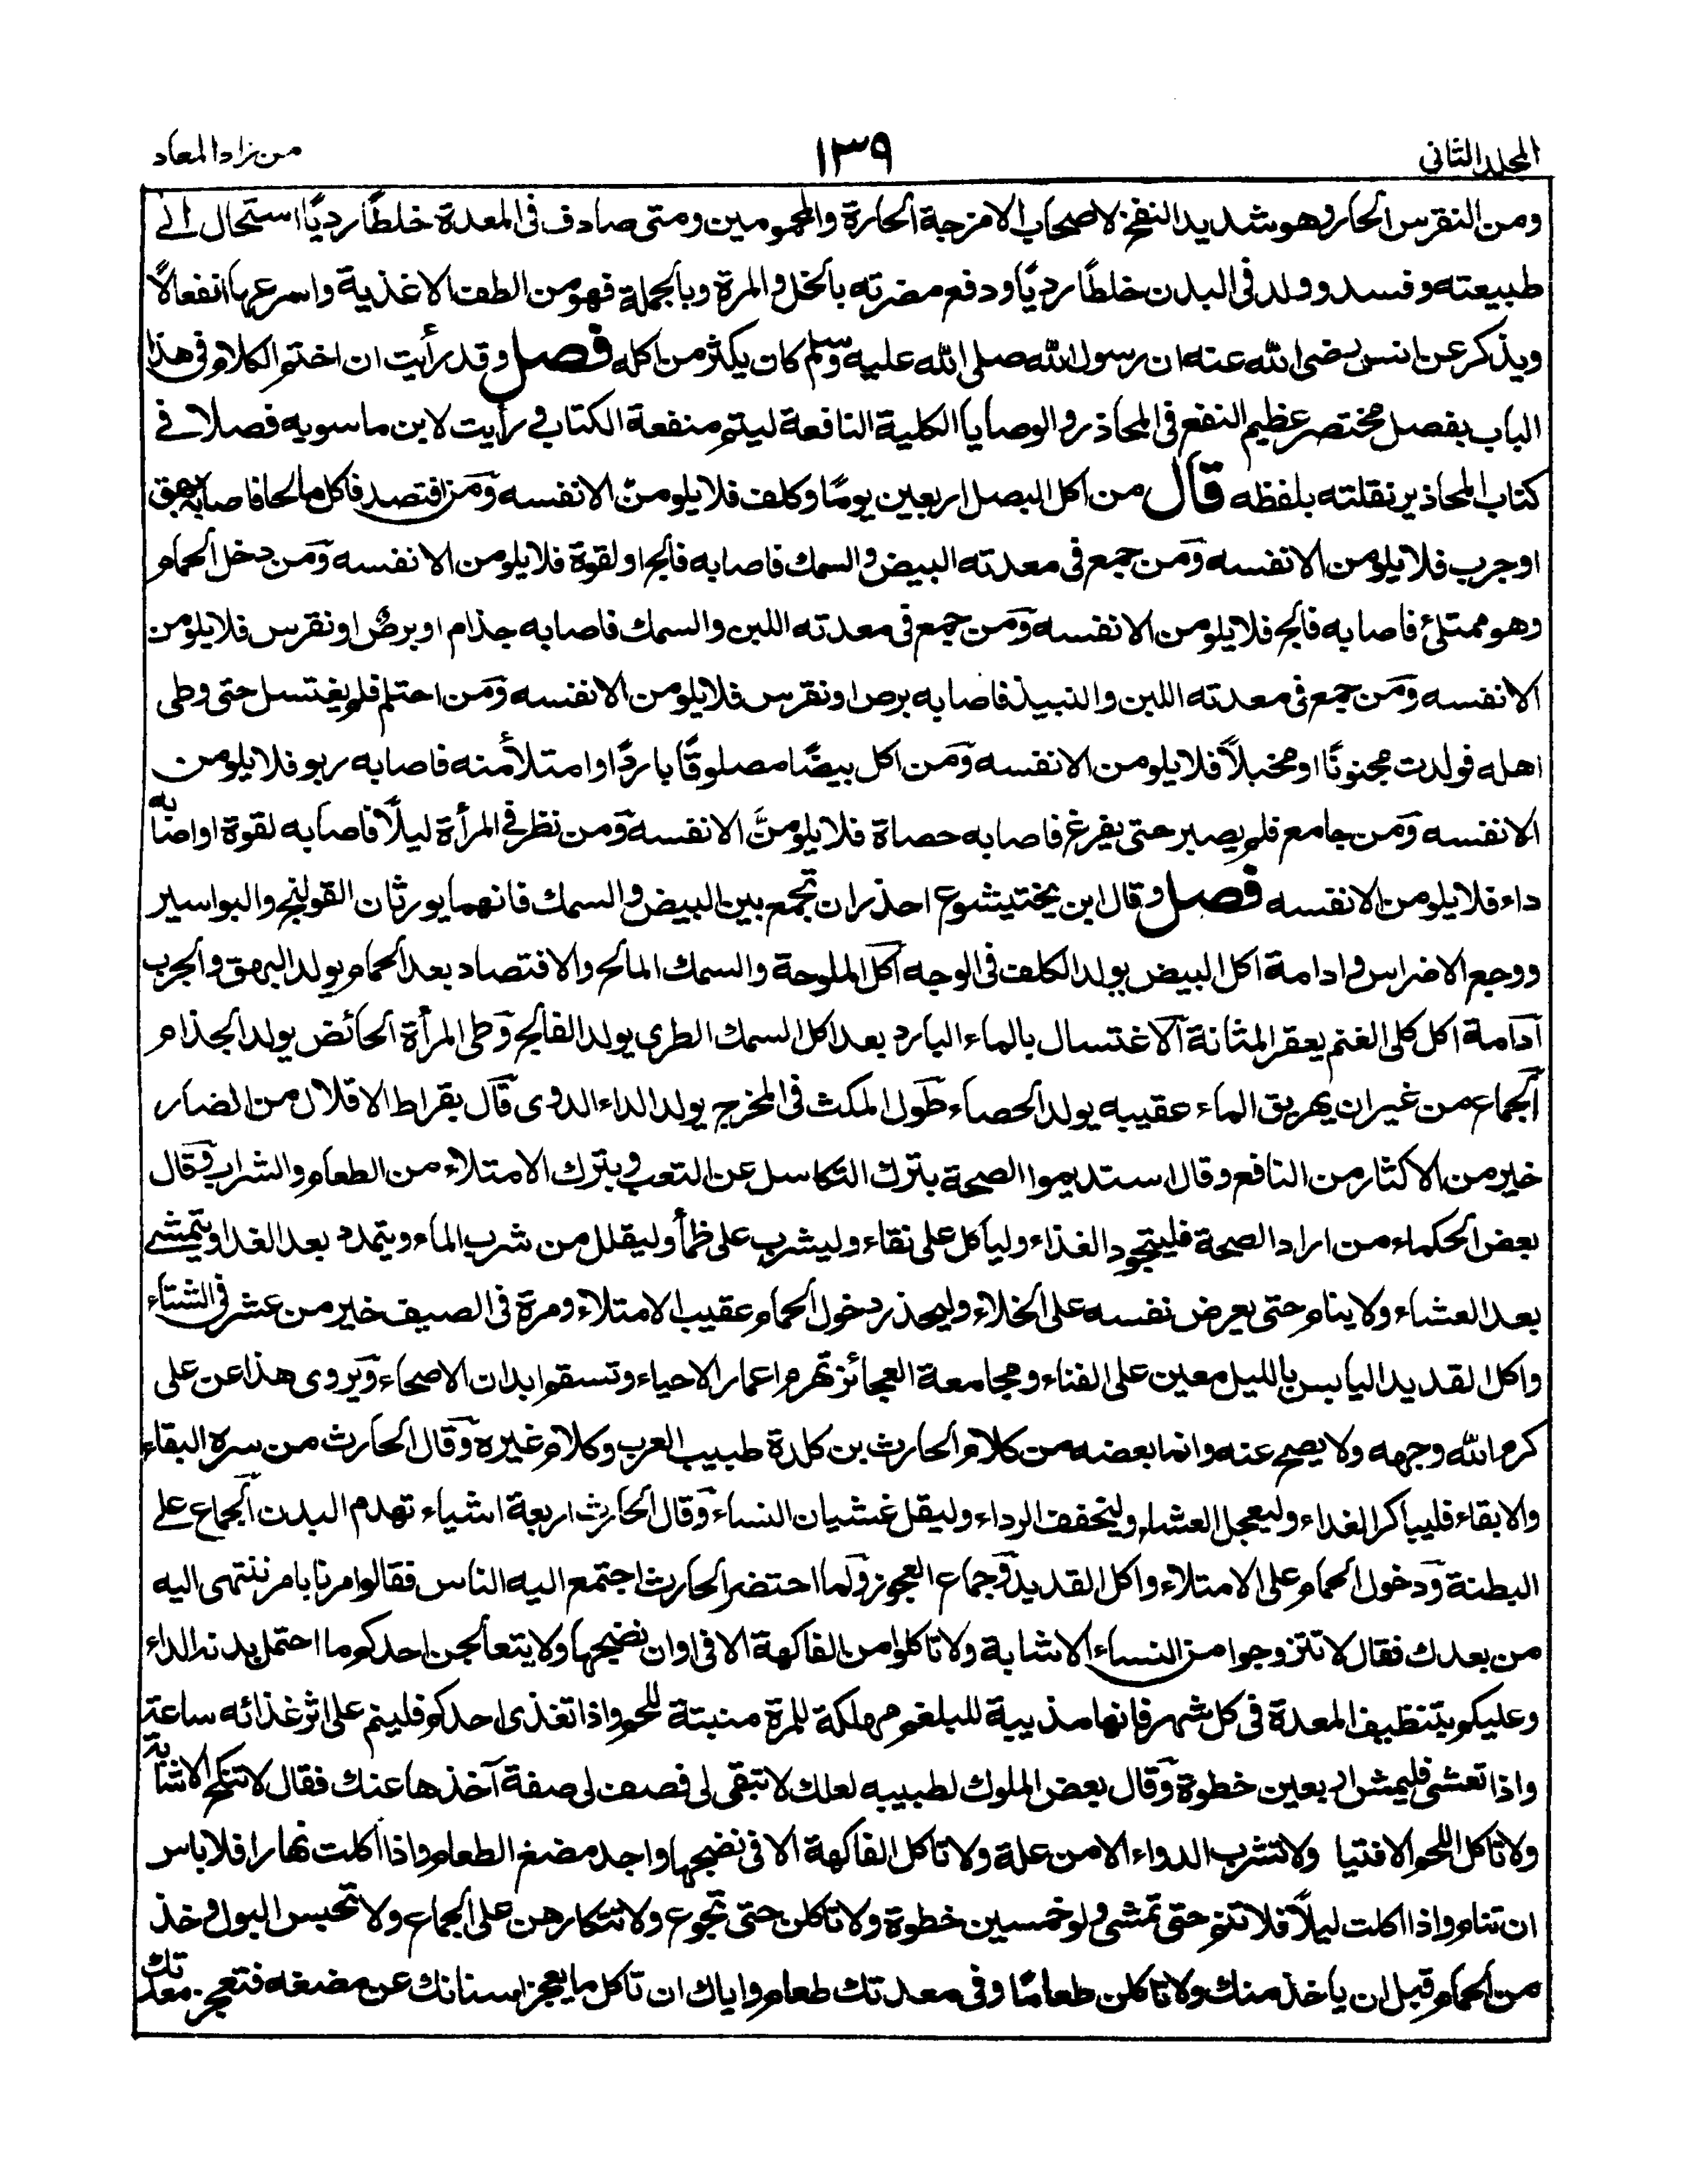 المجلد الثانى
١٣٩
من زاد المعاد
ومن النقرس الحار وهو شديد النفخ لاصحاب الامزجة الحارة والمحمومين ومتى صادف فى المعدة خلطًا رديًّا استحال الے
طبيعته وفسد وولد فى البدن خلطًا رديًّا ودفع مضرته بالخل والمرة وبالجملة فهو من الطف الاغذية واسرعها انفعالًا
ويذكر عن انس رضى الله عنه ان رسول الله صلى الله عليه وسلم كان يكثر من اكله فصل وقد رأيت ان اختم الكلام فى هذا
الباب بفصل مختصر عظيم النفع فى المحاذر والوصايا الكلية النافعة ليتم منفعة الكتاب ورأيت لابن ماسويه فصلا فے
كتاب المحاذير نقلته بلفظه قال من اكل البصل اربعين يومًا وكلف فلا يلومنّ الا نفسه ومن افتصد فاكل مالحا فاصابه بهق
او جرب فلا يلومن الا نفسه ومن جمع فى معدته البيض والسمك فاصابه فالج او لقوة فلا يلومن الا نفسه ومن دخل الحمام
وهو ممتلئ فاصابه فالج فلا يلومن الا نفسه ومن جمع فى معدته اللبن والسمك فاصابه جذام او برص او نقرس فلا يلومن
الا نفسه ومن جمع فى معدته اللبن والنبيذ فاصابه برص او نقرس فلا يلومن الا نفسه ومن احتلم فلم يغتسل حتى وطى
اهله فولدت مجنونًا او مخبلًا فلا يلومن الا نفسه ومن اكل بيضًا مصلوقًا باردًا وامتلأ منه فاصابه ربو فلا يلومن
الا نفسه ومن جامع فلم يصبر حتى يفرغ فاصابه حصاة فلا يلومنَّ الا نفسه ومن نظر فى المرأة ليلًا فاصابه لقوة او اصابه
داء فلا يلومن الا نفسه فصل وقال ابن بختيشوع احذر ان تجمع بين البيض والسمك فانهما يورثان القولنج والبواسير
ووجع الاضراس وادامة اكل البيض يولد الكلف فى الوجه اكل الملوحة والسمك المالح والافتصاد بعد الحمام يولد البهق والجرب
ادامة اكل كلى الغنم يعقر المثانة الاغتسال بالماء البارد بعد اكل السمك الطرى يولد الفالج وطى المرأة الحائض يولد الجذام
الجماع من غير ان يهريق الماء عقيبه يولد الحصاء طول المكث فى المخرج يولد الداء الدوى قال بقراط الاقلال من الضار
خير من الاكثار من النافع وقال استديموا الصحة بترك التكاسل عن التعب وبترك الامتلاء من الطعام والشراب وقال
بعض الحكماء من اراد الصحة فليتجود الغذاء ولياكل على نقاء وليشرب على ظمأ وليقلل من شرب الماء ويتمدد بعد الغدا ويتمشے
بعد العشاء ولا ينام حتى يعرض نفسه على الخلاء وليحذر دخول الحمام عقيب الامتلاء ومرة فى الصيف خير من عشر فى الشتاء
واكل القديد اليابس بالليل معين على الفناء ومجامعة العجائز تهرم اعمار الاحياء وتسقم ابدان الاصحاء ويروى هذا عن على
كرم الله وجهه ولا يصح عنه وانما بعضه من كلام الحارث بن كلدة طبيب العرب وكلام غيره وقال الحارث من سره البقاء
والابقاء فليباكر الغداء وليعجل العشاء وليخفف الرداء وليقل غشيان النساء وقال الحارث اربعة اشياء تهدم البدن الجماع علے
البطنة ودخول الحمام على الامتلاء واكل القديد وجماع العجوز ولما احتضر الحارث اجتمع اليه الناس فقالوا مرنا بامر ننتهى اليه
من بعدك فقال لا تتزوجوا من النساء الا شابة ولا تاكلوا من الفاكهة الا فى اوان نضجها ولا يتعالجن احدكم ما احتمل بدنه الداء
وعليكم بتنظيف المعدة فى كل شهر فانها مذيبة للبلغم مهلكة للمرة منبتة للحم واذا تغذى احدكم فلينم على اثر غذائه ساعة
واذا تعشى فليمش اربعين خطوة وقال بعض الملوك لطبيبه لعلك لا تبقى لى فصف لى صفة آخذها عنك فقال لا تنكح الا شابة
ولا تاكل اللحم الا فتيا ولا تشرب الدواء الا من علة ولا تاكل الفاكهة الا فى نضجها واجد مضغ الطعام واذا اكلت نهارا فلا باس
ان تنام واذا اكلت ليلًا فلا تنم حتى تمشى ولو خمسين خطوة ولا تاكلن حتى تجوع ولا تتكارهن على الجماع ولا تحبس البول وخذ
من الحمام قبل ان ياخذ منك ولا تاكلن طعامًا وفى معدتك طعام واياك ان تاكل ما يعجز اسنانك عن مضغه فتعجز معدتك